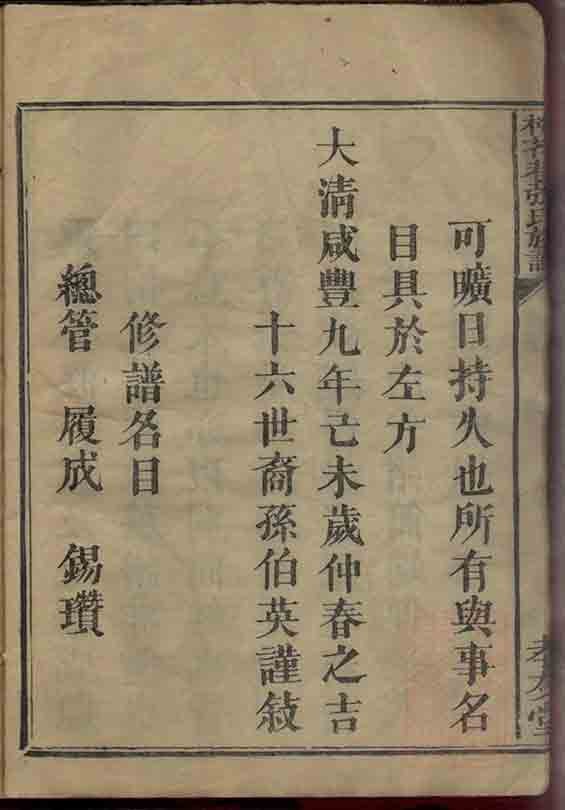 張氏族譜
可曠日持久也所有與事名
目具於左方
大清咸豐九年己未歲仲春之吉
十六世裔孫伯英謹敍
修譜名目
總管 履成 錫瓚
孝友堂